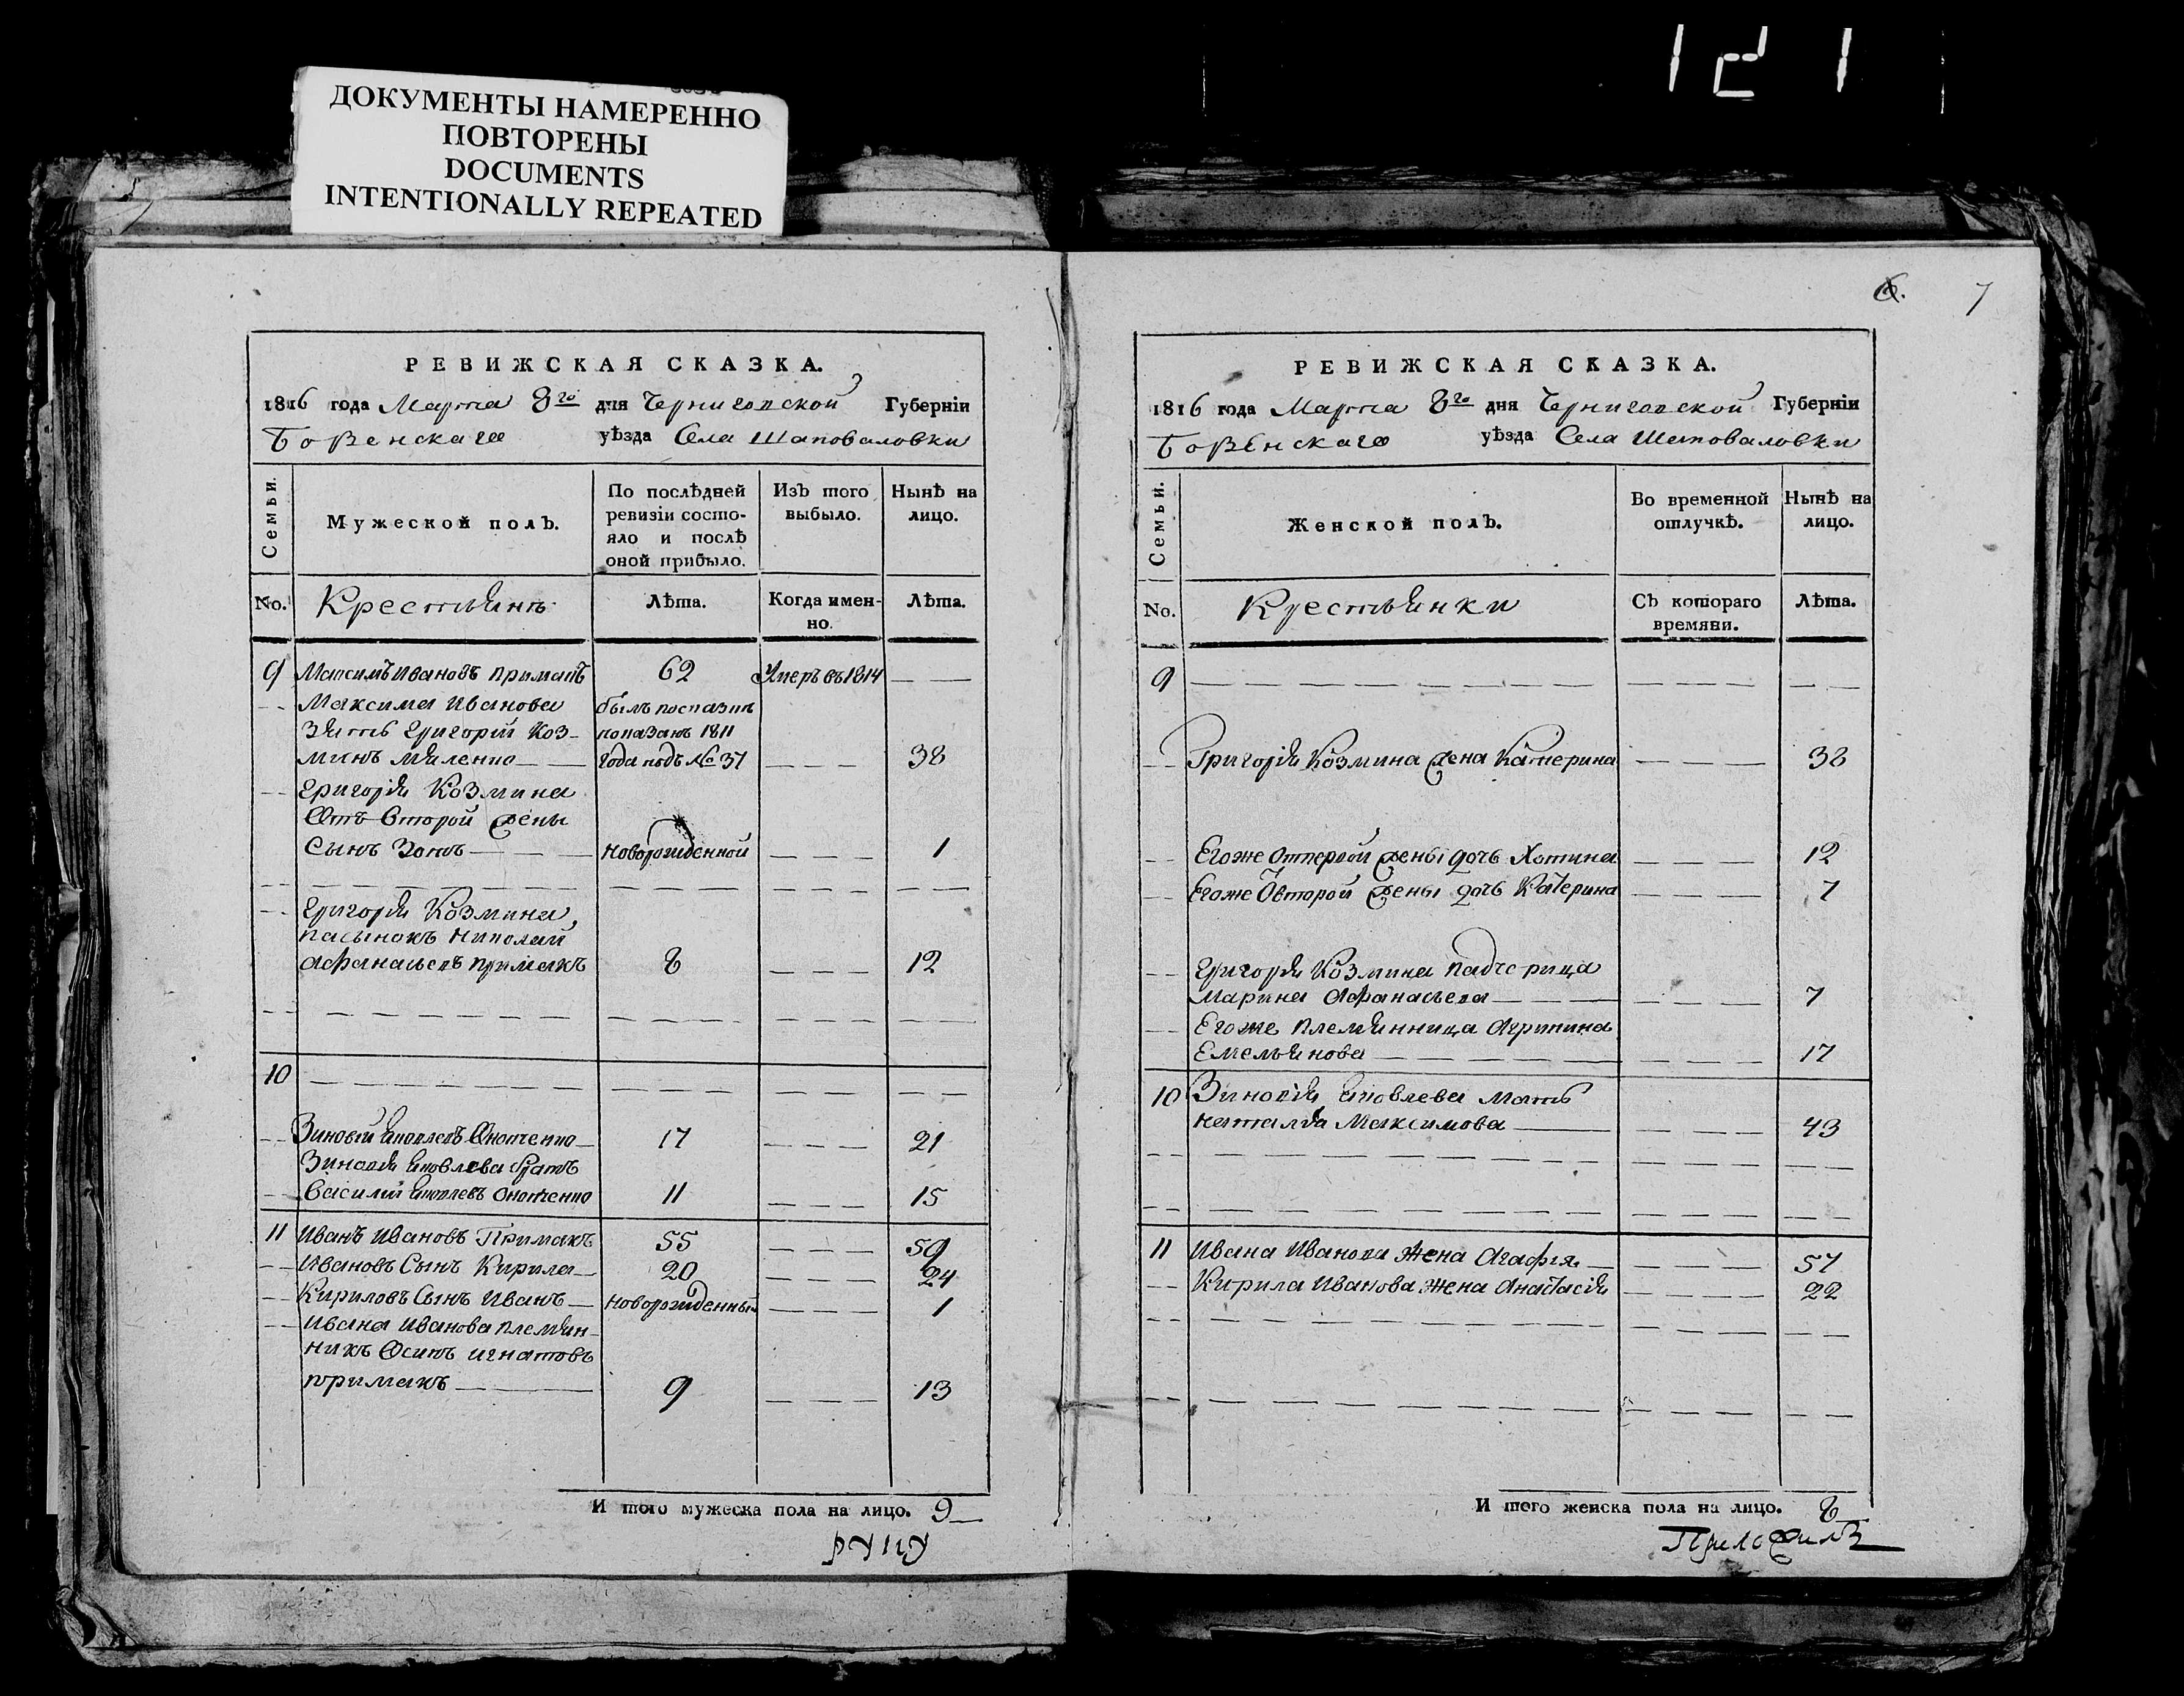 121
ДОКУМЕНТЫ НАМЕРЕННО
ПОВТОРЕНЫ
DOCUMENTS
INTENTIONALLY REPEATED
РЕВИЖСКАЯ СКАЗКА.
1816 года Марта 8го дня Черниговской Губерніи
Борзенскаго уѣзда Села Шаповаловки
Семьи. Мужеской полъ. По послѣдней ревизіи состояло и послѣ оной прибыло. Изъ того выбыло. Нынѣ на лицо.
No. Крестьянъ Лѣта. Когда именно. Лѣта.
9 Максимъ Ивановъ Примакъ 62 Умеръ въ 1814
Максима Иванова былъ
Зять Григорій Коз- показанъ 1811
минъ Миленко года подъ № 37 38
Григорія Козмина
Отъ Второй жены
Сынъ новорожденной 1
Григорія Козмина
пасынокъ Николай
Афанасьевъ Примакъ 8 12
10
Зиновій Яковлевъ 17 21
Зиновія Яковлева братъ
Василий Яковлевъ 11 15
11 Иванъ Ивановъ Примакъ 55 59
Ивановъ Сынъ Кирила 20 24
Кириловъ Сынъ Иванъ новорожденный 1
Ивана Иванова племян-
никъ Осипъ Игнатовъ
примакъ 9 13
И того мужеска пола на лицо. 9
6. 7
РЕВИЖСКАЯ СКАЗКА.
1816 года Марта 8го дня Черниговской Губерніи
Борзенскаго уѣзда Села Шаповаловки
Семьи. Женской полъ. Во временной отлучкѣ. Нынѣ на лицо.
No. Крестьянки Съ котораго времяни. Лѣта.
9
Григорія Козмина жена Катерина 38
Егоже отпервой жены дочь Хотина 12
Егоже Овторой жены дочь Катерина 7
Григорія Козмина падчерица
Марина Афанасьева 7
Егоже племянница Агрипина
Емельянова 17
10 Зиновія Яковлева мать
Наталія Максимова 43
11 Ивана Иванова жена Агафія 57
Кирила Иванова жена Анастасія 22
И того женска пола на лицо. 8